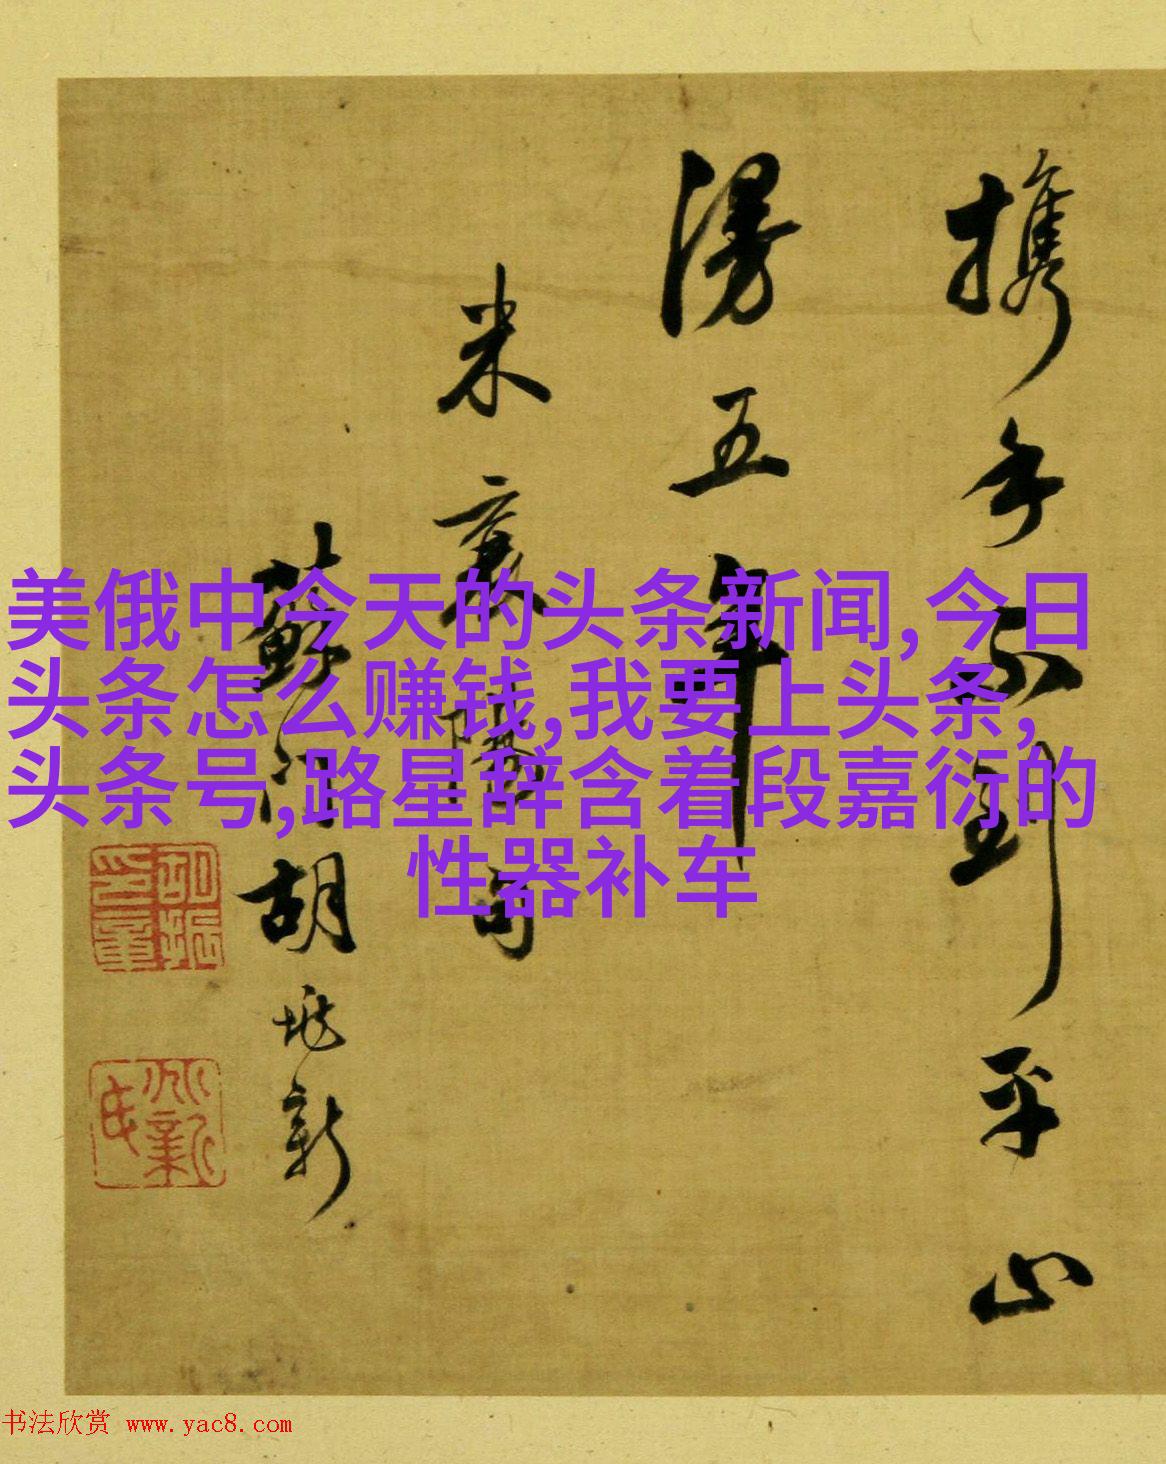 携手不到平山
漫五年
米襄陽句
胡垗新
美俄中今天的头条新闻,今日
头条怎么赚钱,我要上头条,
头条号,路星辞含着段嘉衍的
性器补车
书法欣赏 www.yac8.com